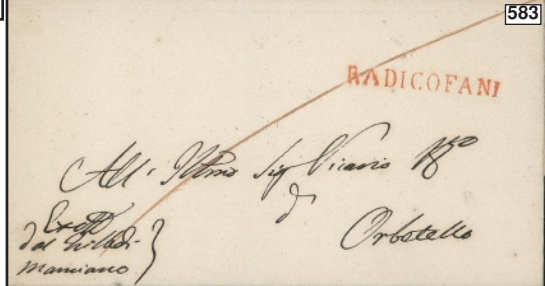 583
RADICOFANI
All' Illmo Sig Vicario
di
Orbetello
dal
Manciano